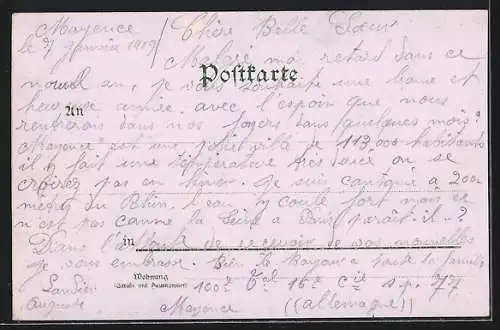 Mayence
le 7 janvier 1919 / Chère Belle Soeur
Malgré mon retard dans ce
Postkarte.
nouvel an, je vous souhaite une bonne et
An
heureuse année avec l'espoir que nous
rentrerons dans nos foyers dans quelques mois.
Mayence est une jolie ville de 113,000 habitants
il y fait une température très douce on se
croirez pas en hiver. Je suis cantiqué à 200
mètres du Rhin. l'eau y coule fort mais ce
n'est pas comme la Seine à Paris paraît il..?
Dans l'attente de recevoir de vos nouvelles
in
je vous embrasse. Bien le bonjour à toute la famille
Wohnung
(Straße und Hausnummer)
Auguste 100e Bal 16e Cie s.p. 77
Mayence ((allemagne)